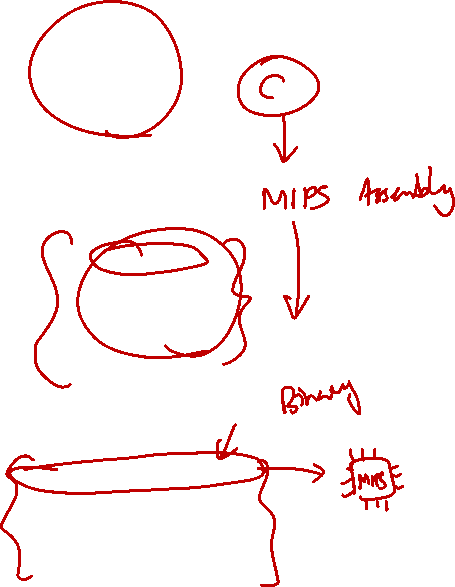 C
MIPS Assembly
Binary
MIPS